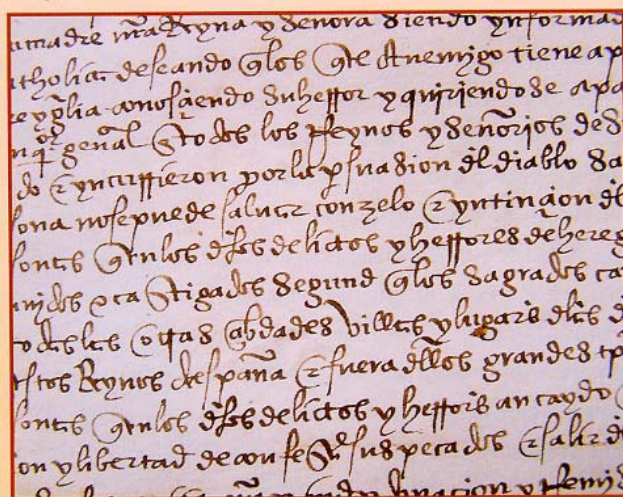 madre nr̃a Reyna y señora siendo ynformad
catholica deseando q̃ los q̃ este Enemigo tiene ap
eygl̃ia conosçiendo su herror y quiriendose apa
qͦr genãl en todos los Reynos y señorios de s
do e yncurrieron por la persuasion del diablo sa
sona no se puede saluar con zelo e yntinçion de
sonas q̃ en los dhos delictos y herrores de hereg
unidos o castigados segund q̃ los sagrados ca
todas las otras çibdades villas y lugares d̃las d
estos Reynos despaña e fuera dellos grandes
sonas q̃ en los dhos delictos y herrores an caydo
ion y libertad de confesar sus pecados e salir d